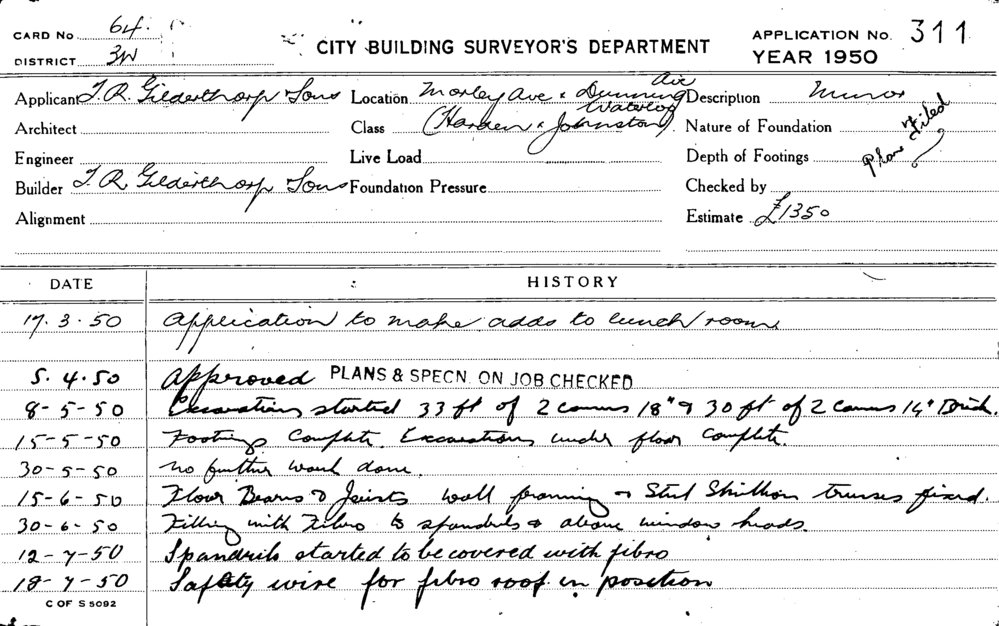 CARD No 64.
DISTRICT 3W
CITY BUILDING SURVEYOR'S DEPARTMENT
APPLICATION No. 311
YEAR 1950
Applicant T. R. Gilderthorp Sons Location Morley Ave & Dunning Ave Description Minor
Waterloo
Architect Class (Harden & Johnston). Nature of Foundation
Plans Filed
Engineer Live Load Depth of Footings
Builder T. R. Gilderthorp Sons Foundation Pressure Checked by
Alignment Estimate £1350
DATE HISTORY
17.3.50 Application to make adds to lunch room
5.4.50 Approved PLANS & SPECN. ON JOB CHECKED
8-5-50 Excavations started 33 ft of 2 courses 18" & 30 ft of 2 courses 14" Brick.
15-5-50 Footings Complete. Excavations under floor Complete.
30-5-50 no further work done.
15-6-50 Floor Bearers & Joists wall framing & Steel Skillion trusses fixed.
30-6-50 Filling with Fibro to spandrils & above window heads.
12-7-50 Spandrils started to be covered with fibro
18-7-50 Safety wire for fibro roof in position
C OF S 5092